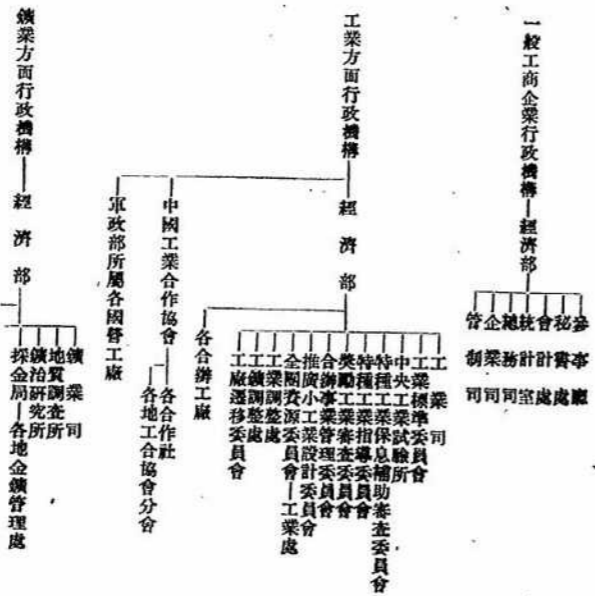 一般工商企業行政機構
經濟部
參事廳
秘書處
會計處
統計室
總務司
企業司
管制司
工業方面行政機構
經濟部
工業司
工業標準委員會
中央工業試驗所
特種工業保息補助審查委員會
特種工業指導委員會
獎勵工業審查委員會
合辦事業管理委員會
推廣小工業設計委員會
全國資源委員會
工業處
工業調整處
工鑛調整處
工廠遷移委員會
各合辦工廠
中國工業合作協會
各合作社
各地工合協會分會
軍政部所屬各國營工廠
鑛業方面行政機構
經濟部
鑛業司
地質調查所
鑛冶研究所
採金局
各地金鑛管理處